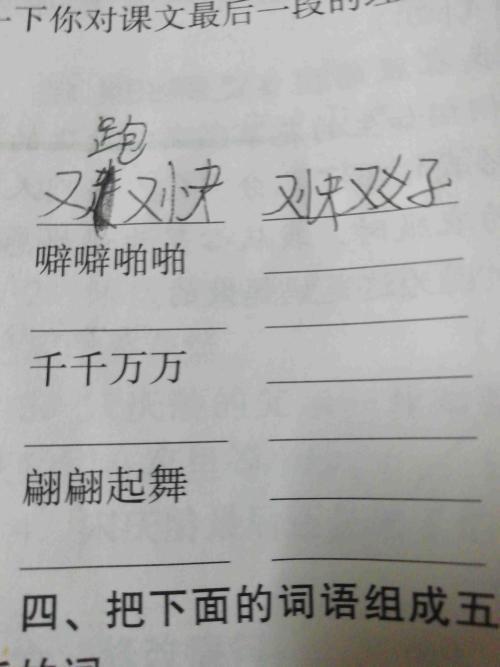 一下你对课文最后一段的
跑
又又快 又快又好
噼噼啪啪
千千万万
翩翩起舞
四、把下面的词语组成五
的词